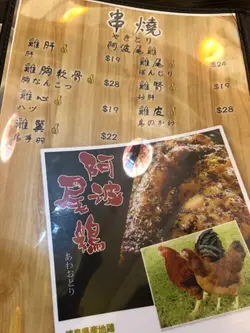 串燒
やきとり
阿波尾雞
雞肝
肝
$19
雞胸軟骨
胸なんこつ
$28
雞心
ハツ
$19
雞翼
$22
雞尾
ぼんじり
$24
雞腎
砂肝
$28
雞皮
$19
阿波
尾鶏
あわおどり
徳島県産地鶏